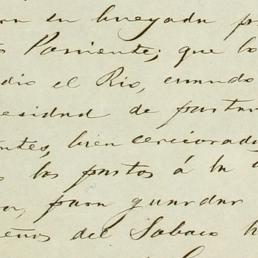 en bueyada p
Poniente; que lo
dio el Rio, cuando
esidad de pastar
ntes, bien cerciorado
los pastos á la
para guardar
eños del Sabaco h